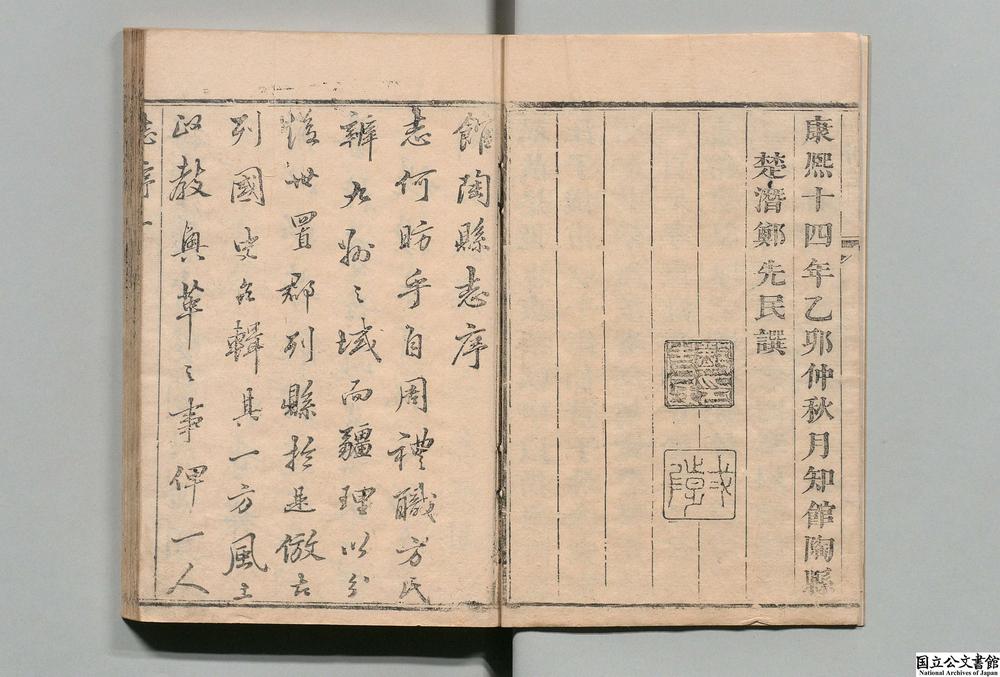 康熙十四年乙卯仲秋月知館陶縣
楚潛鄭先民譔
館陶縣志序
志何昉乎自周禮職方氏
辨九州之域而疆理以分
後世置郡列縣於是倣古
列國史各輯其一方風土
政教興革之事俾一人
志序一
国立公文書館
National Archives of Japan